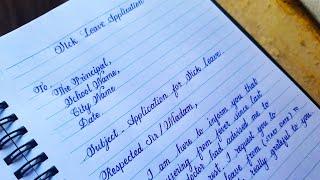 Sick Leave Application
To
The Principal,
School Name,
City Name
Date
Subject - Application for Sick Leave.
Respected Sir/Madam,
I am here to inform you that
suffering from fever since last
doctor had advised me to
rest. I request you to
leave from (xxx xxx)
really grateful to you